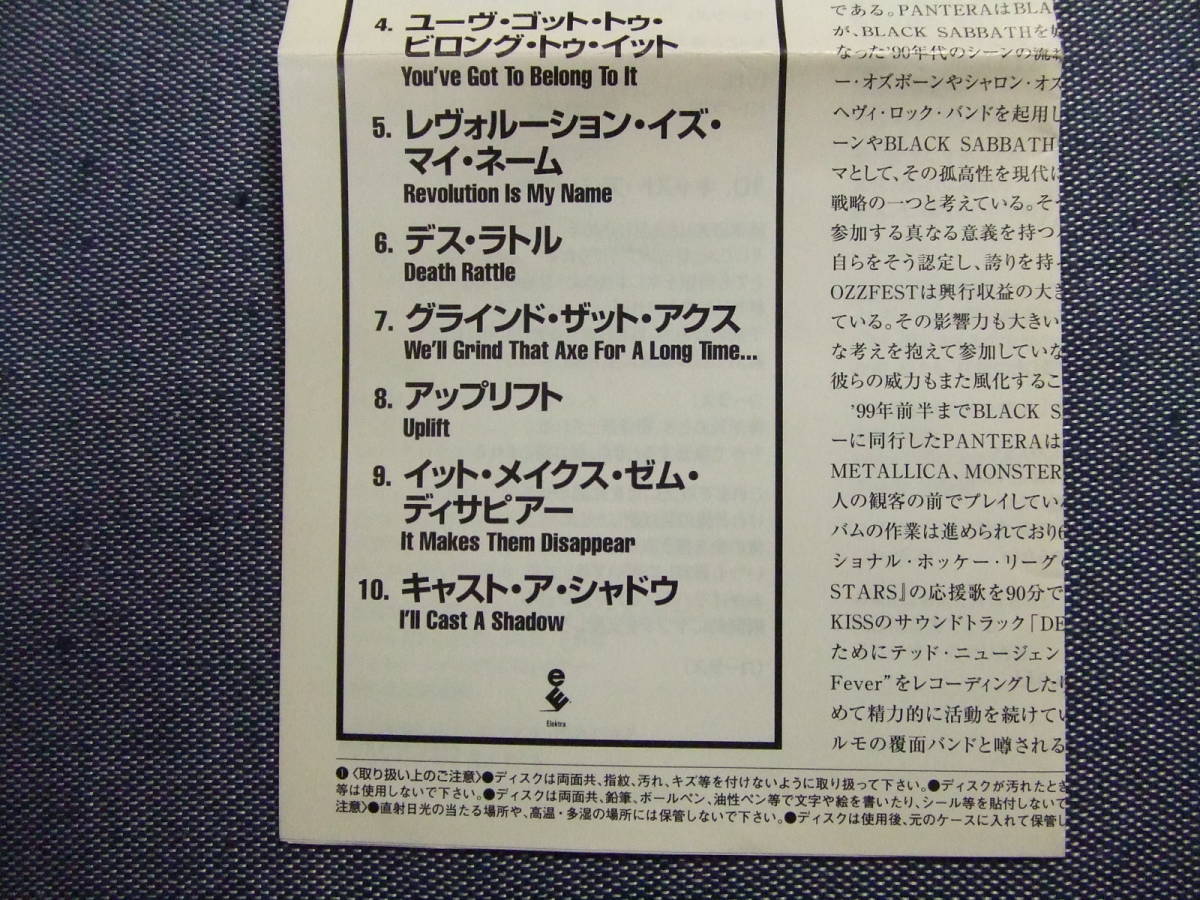 4. ユーヴ・ゴット・トゥ・
ビロング・トゥ・イット
You've Got To Belong To It
5. レヴォルーション・イズ・
マイ・ネーム
Revolution Is My Name
6. デス・ラトル
Death Rattle
7. グラインド・ザット・アクス
We'll Grind That Axe For A Long Time...
8. アップリフト
Uplift
9. イット・メイクス・ゼム・
ディサピアー
It Makes Them Disappear
10. キャスト・ア・シャドウ
I'll Cast A Shadow
Elektra
である。PANTERAはBLA
が、BLACK SABBATHを
なった'90年代のシーンの流
ー・オズボーンやシャロン・オズ
ヘヴィ・ロック・バンドを起用し
ーンやBLACK SABBATH
マとして、その孤高性を現代に
戦略の一つと考えている。そう
参加する真なる意義を持つ
自らをそう認定し、誇りを持
OZZFESTは興行収益の大き
ている。その影響力も大きい
な考えを抱えて参加していな
彼らの威力もまた風化するこ
'99年前半までBLACK S
ーに同行したPANTERAは
METALLICA、MONSTER
人の観客の前でプレイしてい
バムの作業は進められており
ショナル・ホッケー・リーグ
STARS』の応援歌を90分で
KISSのサウンドトラック「DE
ためにテッド・ニュージェン
Fever"をレコーディングしたり
めて精力的に活動を続けてい
ルモの覆面バンドと噂される
❶〈取り扱い上のご注意〉●ディスクは両面共、指紋、汚れ、キズ等を付けないように取り扱って下さい。●ディスクが汚れたとき
等は使用しないで下さい。●ディスクは両面共、鉛筆、ボールペン、油性ペン等で文字や絵を書いたり、シール等を貼付しないで
注意〉●直射日光の当たる場所や、高温・多湿の場所には保管しないで下さい。●ディスクは使用後、元のケースに入れて保管し